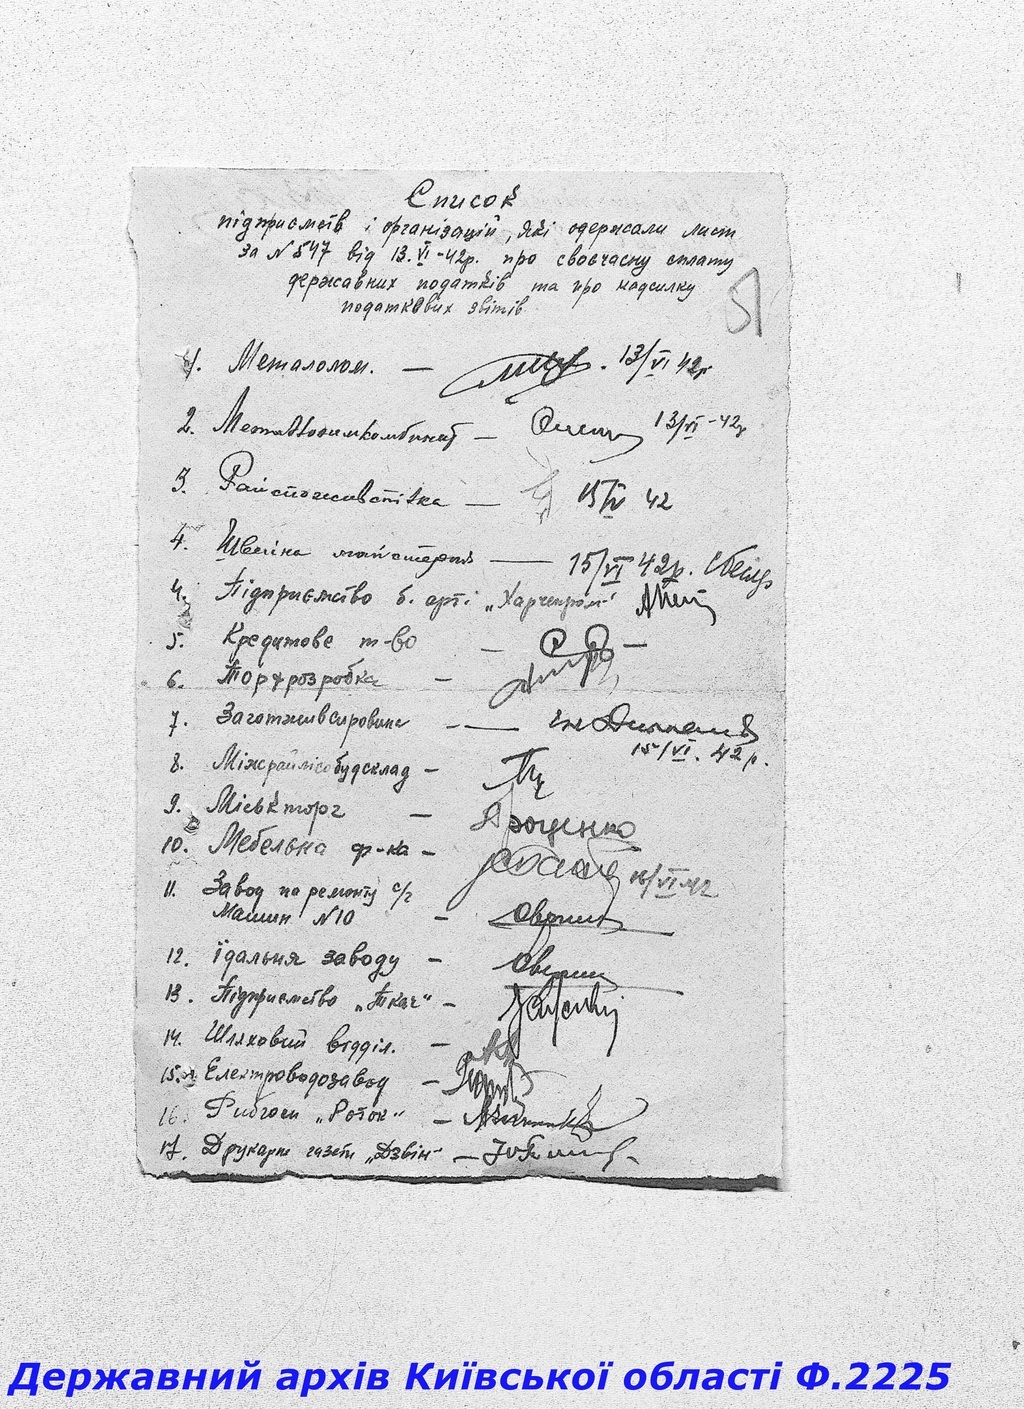 Список
підприємств і організацій, які одержали лист
за № 547 від 13.VI-42р. про своєчасну сплату
державних податків та про надсилку
податкових звітів
51
1. Металолом. — 13/VI 42р
2. — 13/VI-42р
3. Райспоживспілка — 15/IV 42
4. Швейна майстерня — 15/VI 42р.
4. Підприємство б. арті „Харчепром"
5. Кредитове т-во —
6. Торфрозробка —
7. Заготживсировина —
15/VI. 42р.
8. Міжрайлісобудсклад —
9. Міськторг — Яроценко
10. Мебельна ф-ка — 16/VI 42
11. Завод по ремонту с/г
Машин №10 —
12. їдальня заводу —
13. Підприємство „Ткач" —
14. Шляховий відділ. —
15. Електроводозавод —
16. Рибгосп „Роток" —
17. Друкарня газети „Дзвін" —
Державний архів Київської області Ф.2225